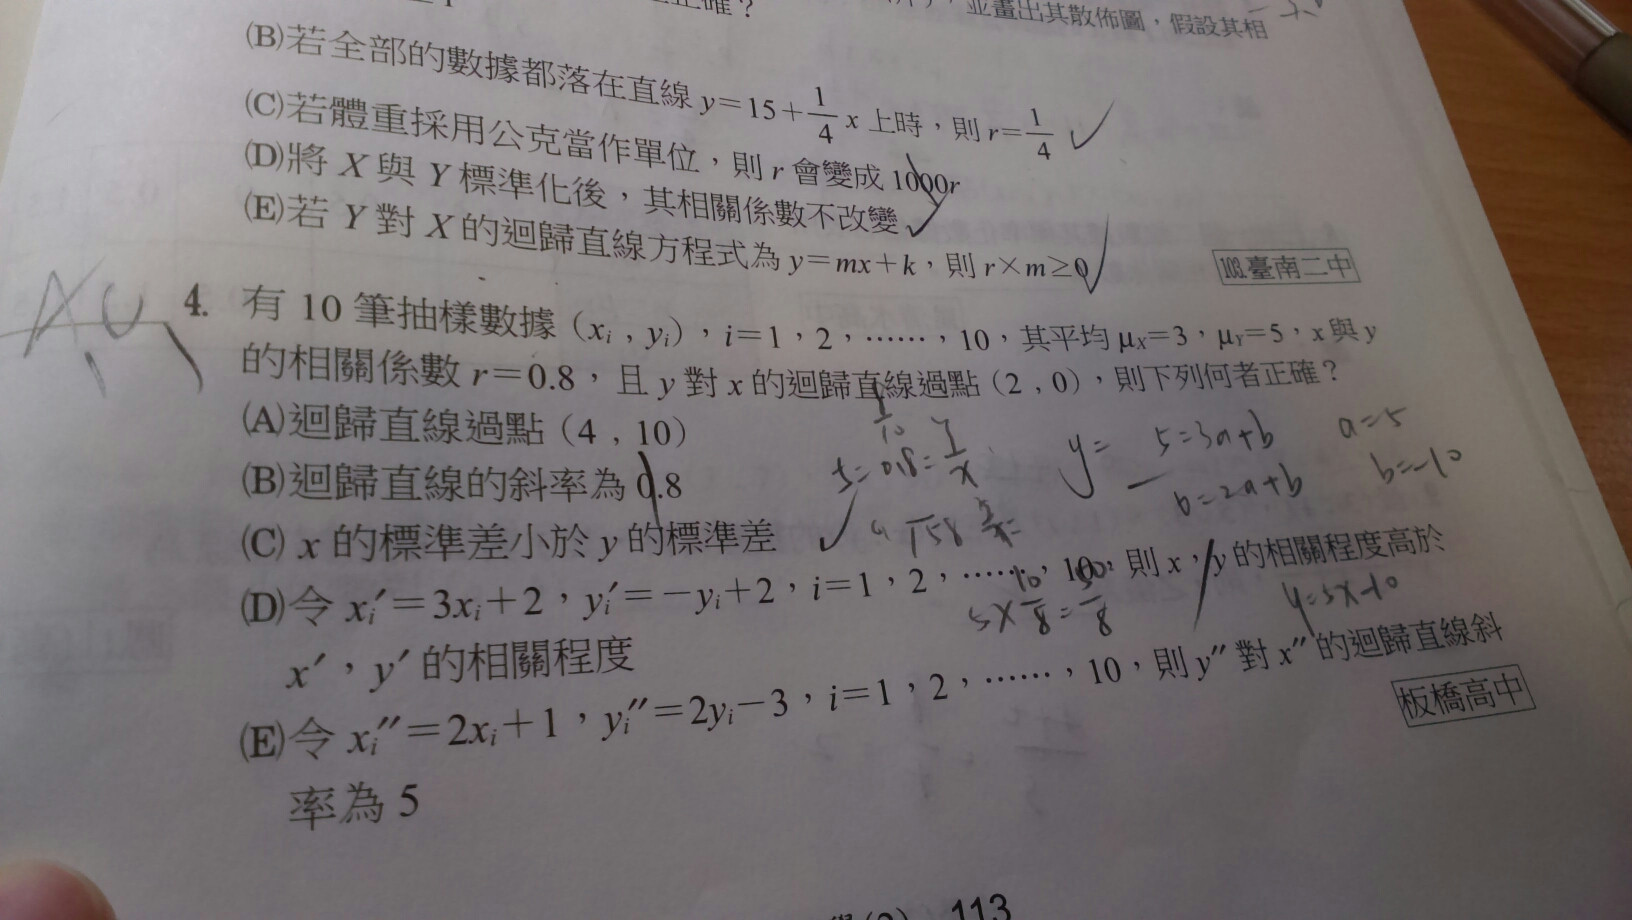 正確？
並畫出其散佈圖，假設其相
(B)若全部的數據都落在直線 y=15+1/4 x 上時，則 r=1/4
(C)若體重採用公克當作單位，則 r 會變成 1000r
(D)將 X 與 Y 標準化後，其相關係數不改變
(E)若 Y 對 X 的迴歸直線方程式為 y=mx+k，則 r×m≥0
103.臺南二中
4. 有 10 筆抽樣數據（xi , yi），i=1，2，……，10，其平均 μX=3，μY=5，x 與 y
的相關係數 r=0.8，且 y 對 x 的迴歸直線過點（2 , 0），則下列何者正確？
(A)迴歸直線過點（4 , 10）
(B)迴歸直線的斜率為 0.8
(C) x 的標準差小於 y 的標準差
(D)令 xi′=3xi+2，yi′=−yi+2，i=1，2，……，10，則 x，y 的相關程度高於
x′，y′ 的相關程度
(E)令 xi″=2xi+1，yi″=2yi−3，i=1，2，……，10，則 y″ 對 x″ 的迴歸直線斜
率為 5
板橋高中
y=
5=3a+b
a=5
b=-10
y=5x-10
5×10/8=50/8
113